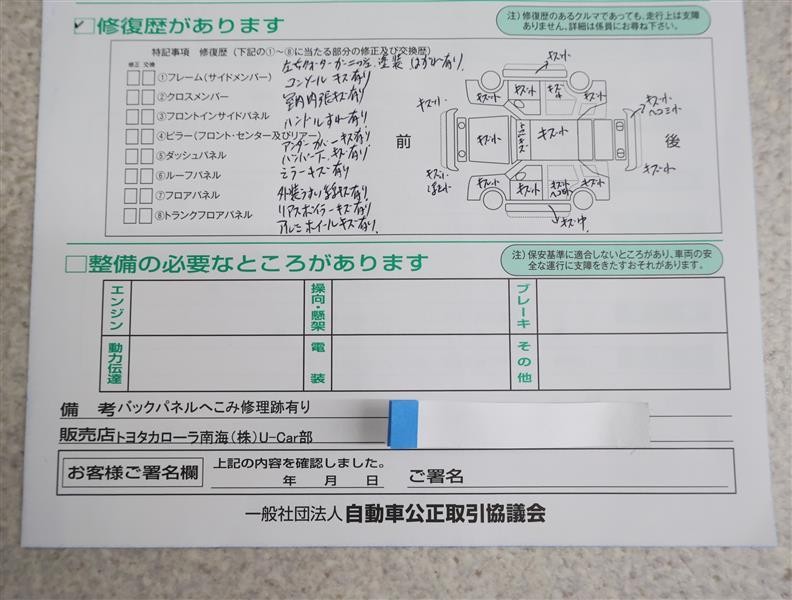 ✓□修復歴があります
注）修復歴のあるクルマであっても、走行上は支障
ありません、詳細は係員にお尋ね下さい。
特記事項 修復歴（下記の①～⑧に当たる部分の修正及び交換歴）
修正 交換
①フレーム（サイドメンバー）
②クロスメンバー
③フロントインサイドパネル
④ピラー（フロント・センター及びリアー）
⑤ダッシュパネル
⑥ルーフパネル
⑦フロアパネル
⑧トランクフロアパネル
塗装 はがれ有り
コンソール キズ有り
室内内張キズ有り
ハンドルすれ有り
アンダーカバーキズ有り
ミラーキズ有り
リアスポイラーキズ有り
アルミホイールキズ有り
前
後
キズ小
キズ小
キズ小
キズ小
キズ小
キズ小
キズ小
キズ小
ヘコミ小
キズ小
キズ小
キズ小
キズ小
ヘコミ小
キズ小
キズ小
キズ中
□整備の必要なところがあります
注）保安基準に適合しないところがあり、車両の安
全な運行に支障をきたすおそれがあります。
エンジン
操向・懸架
ブレーキ
動力伝達
電装
その他
備考 バックパネルへこみ修理跡有り
販売店 トヨタカローラ南海（株）U-Car部
お客様ご署名欄
上記の内容を確認しました。
年 月 日
ご署名
一般社団法人 自動車公正取引協議会